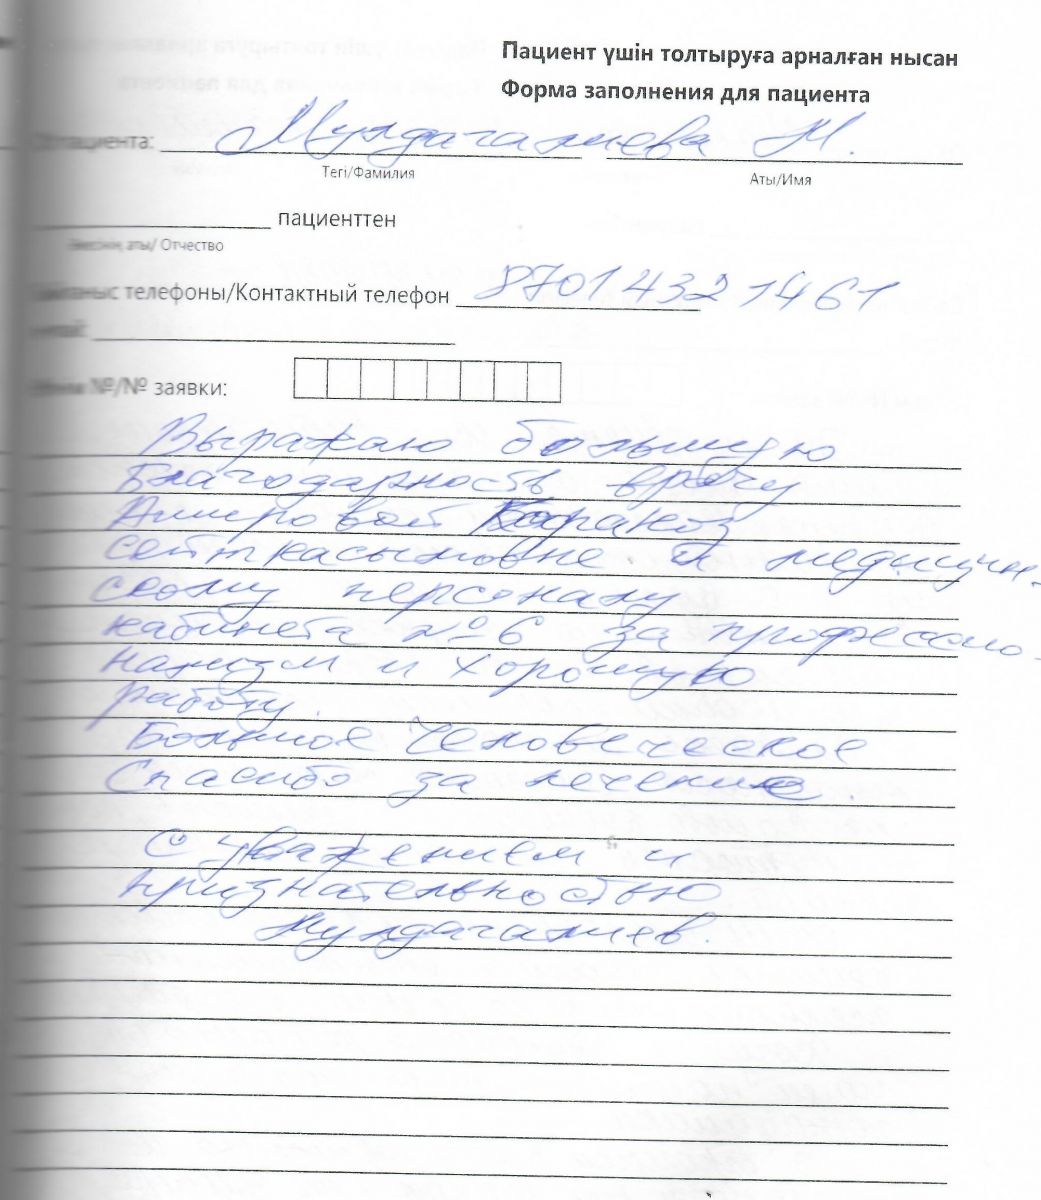 Пациент үшін толтыруға арналған нысан
Форма заполнения для пациента
пациента: Мулдагалиева М.
Тегі/Фамилия Аты/Имя
пациенттен
аты/ Отчество
телефоны/Контактный телефон 87014321461
№/№ заявки:
Выражаю большую
благодарность врачу
Ашировой Каракоз
сейткасымовне и медицин-
скому персоналу
кабинета №6 за профессио-
нализм и хорошую
работу.
Большое Человеческое
Спасибо за лечение.
С уважением и
признательностью
Мулдагалиев.